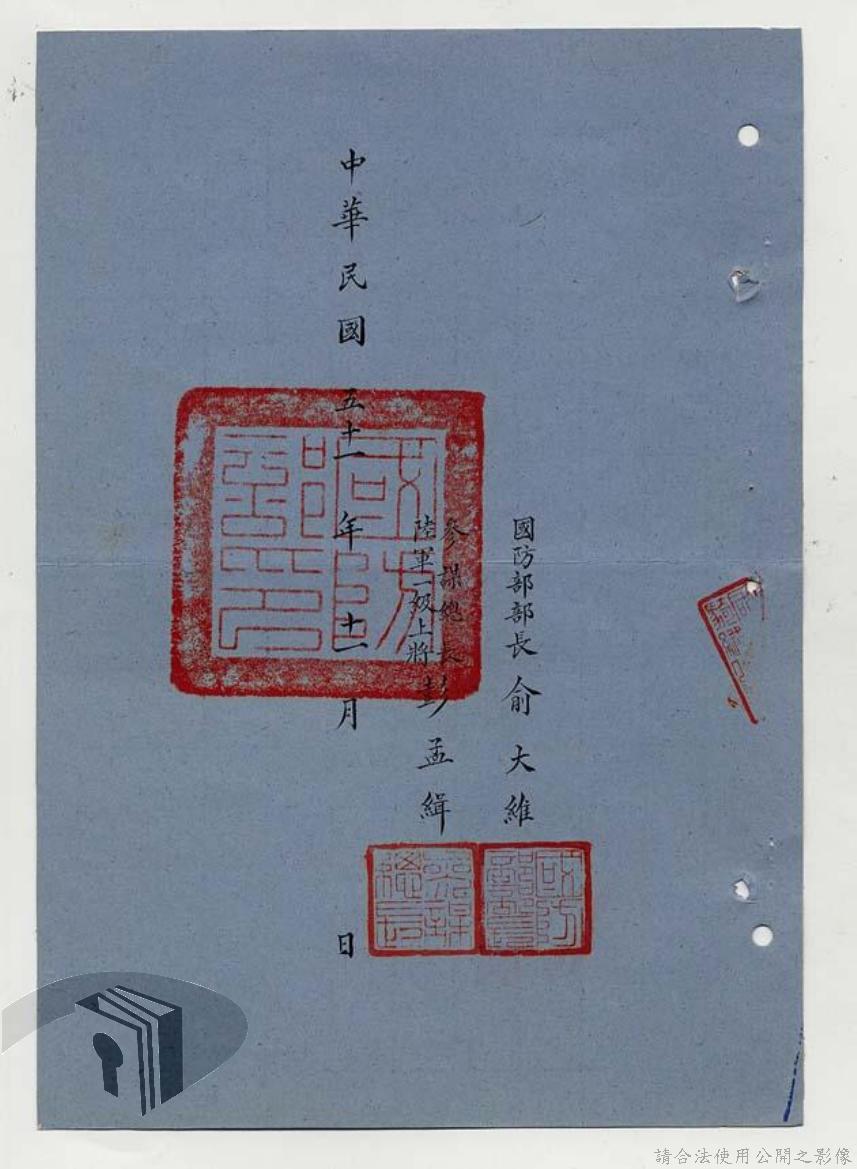 國防部部長 俞大維
參謀總長
陸軍一級上將 彭孟緝
中華民國 五十一 年 十一 月 日
國防部印
國防部部長
參謀總長
請合法使用公開之影像